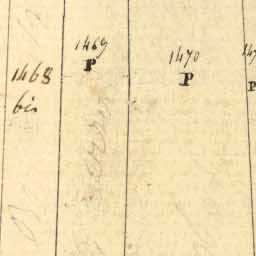 1468
bis
1469
P
1470
P
P